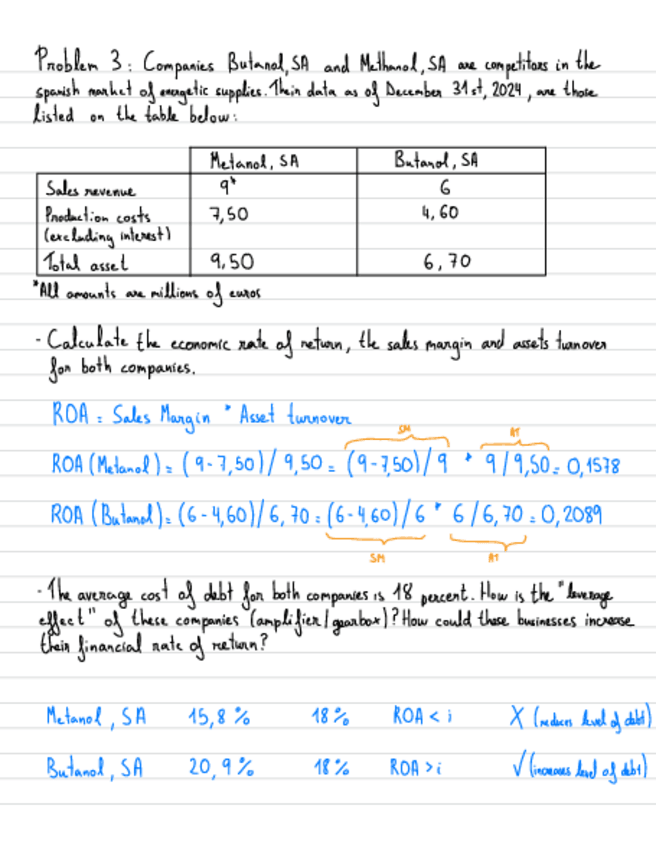 Problem 3: Companies Butanol, SA and Methanol, SA are competitors in the
spanish market of energetic supplies. Their data as of December 31st, 2024, are those
listed on the table below:
Metanol, SA Butanol, SA
Sales revenue 9* 6
Production costs 7,50 4,60
(excluding interest)
Total asset 9,50 6,70
*All amounts are millions of euros
- Calculate the economic rate of return, the sales margin and assets turnover
for both companies.
ROA = Sales Margin * Asset turnover
SM AT
ROA (Metanol) = (9-7,50) / 9,50 = (9-7,50) / 9 * 9 / 9,50 = 0,1578
ROA (Butanol) = (6-4,60) / 6,70 = (6-4,60) / 6 * 6 / 6,70 = 0,2089
SM AT
- The average cost of debt for both companies is 18 percent. How is the "leverage
effect" of these companies (amplifier / gearbox)? How could these businesses increase
their financial rate of return?
Metanol, SA 15,8 % 18 % ROA < i X (reduces level of debt)
Butanol, SA 20,9 % 18 % ROA > i √ (increases level of debt)